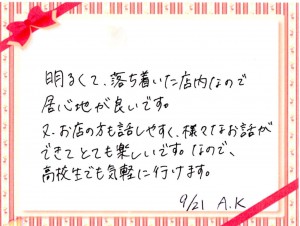 明るくて、落ち着いた店内なので
居心地が良いです。
又、お店の方も話しやすく、様々なお話が
できてとても楽しいです。なので、
高校生でも気軽に行けます。
9/21 A.K